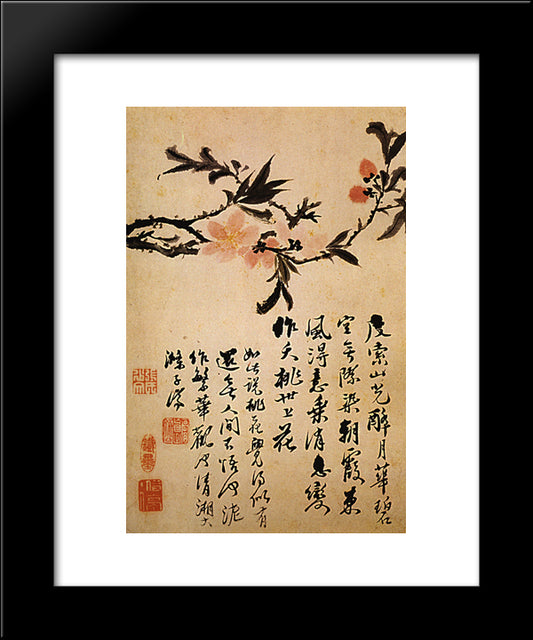 度索山光醉月華碧
空無際染朝霞東
風得意乘消息變
作夭桃世上花
如此說桃花覺得似有
還無人間不悟何泥
作繁華觀也清湘大
滌子濟